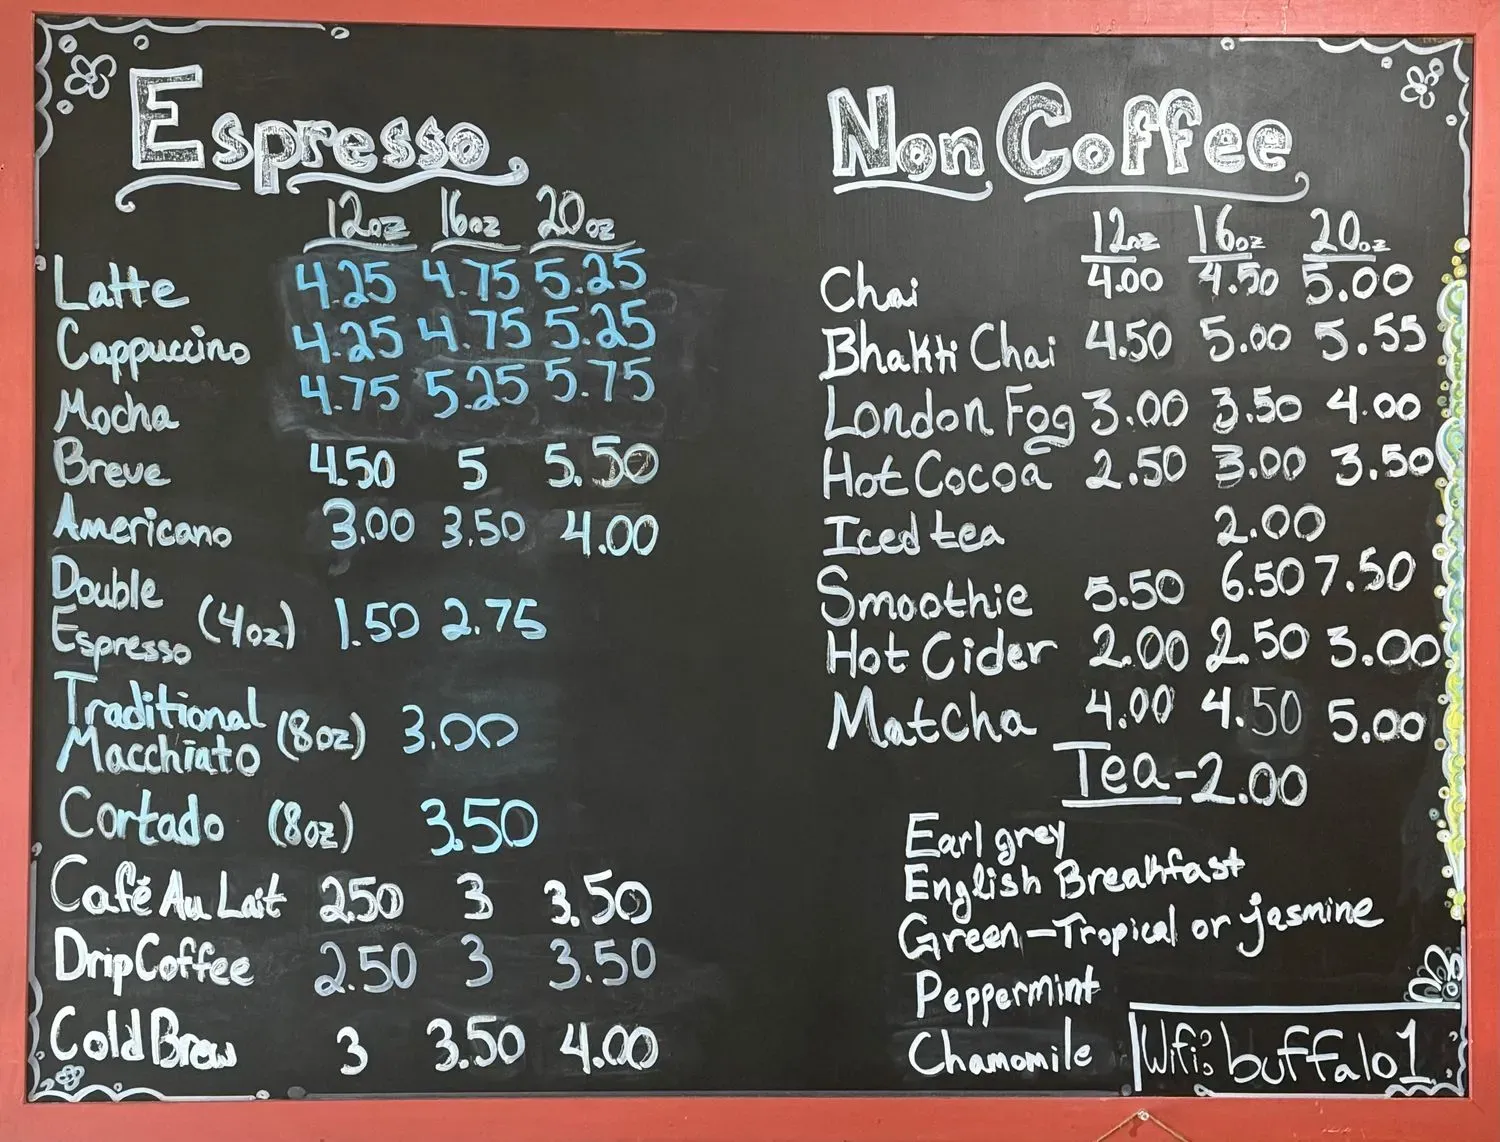 Espresso
12oz 16oz 20oz
Latte 4.25 4.75 5.25
Cappuccino 4.25 4.75 5.25
Mocha 4.75 5.25 5.75
Breve 4.50 5 5.50
Americano 3.00 3.50 4.00
Double
Espresso (4oz) 1.50 2.75
Traditional
Macchiato (8oz) 3.00
Cortado (8oz) 3.50
Café Au Lait 2.50 3 3.50
Drip Coffee 2.50 3 3.50
Cold Brew 3 3.50 4.00
Non Coffee
12oz 16oz 20oz
Chai 4.00 4.50 5.00
Bhakti Chai 4.50 5.00 5.55
London Fog 3.00 3.50 4.00
Hot Cocoa 2.50 3.00 3.50
Iced tea 2.00
Smoothie 5.50 6.50 7.50
Hot Cider 2.00 2.50 3.00
Matcha 4.00 4.50 5.00
Tea - 2.00
Earl grey
English Breakfast
Green - Tropical or jasmine
Peppermint
Chamomile
Wifi: buffalo1